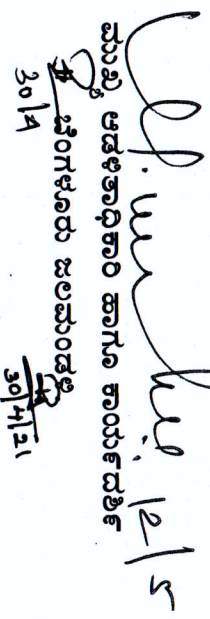 12/5
ಮುಖ್ಯ ಆಡಳಿತಾಧಿಕಾರಿ ಹಾಗೂ ಕಾರ್ಯದರ್ಶಿ
ಬೆಂಗಳೂರು ಜಲಮಂಡಳಿ
30/4
30/4/21